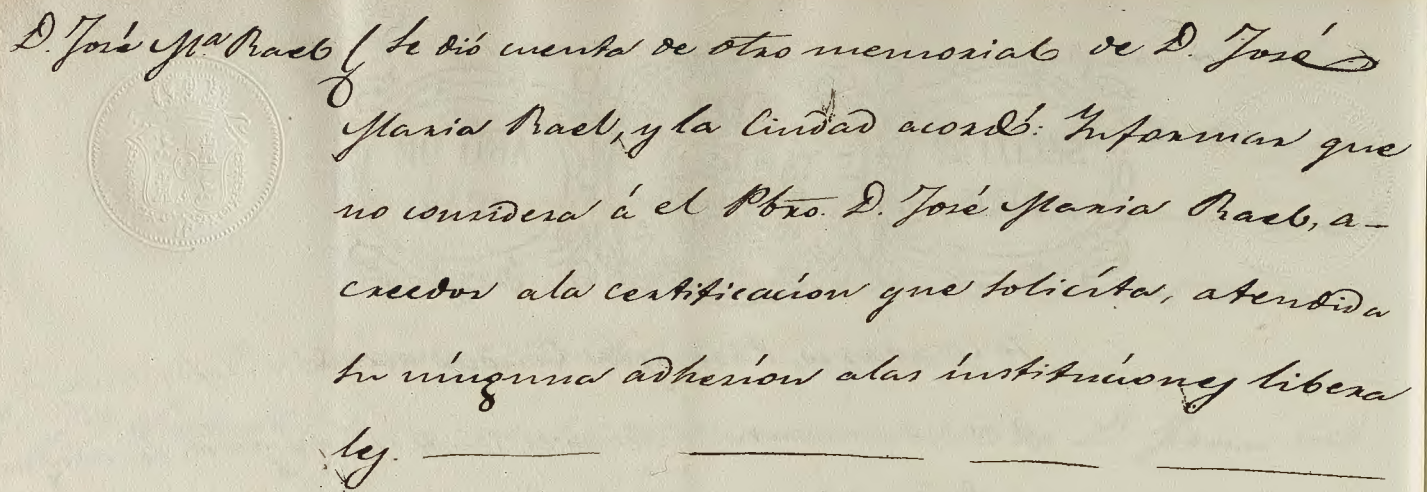 D. José Mª Rael
Se dió cuenta de otro memorial de D. José
Maria Rael, y la Ciudad acordó: Informar que
no considera á el Pbro. D. José Maria Rael, a-
creedor ala certificacion que solicita, atendida
su ninguna adhesion alas instituciones libera
les.